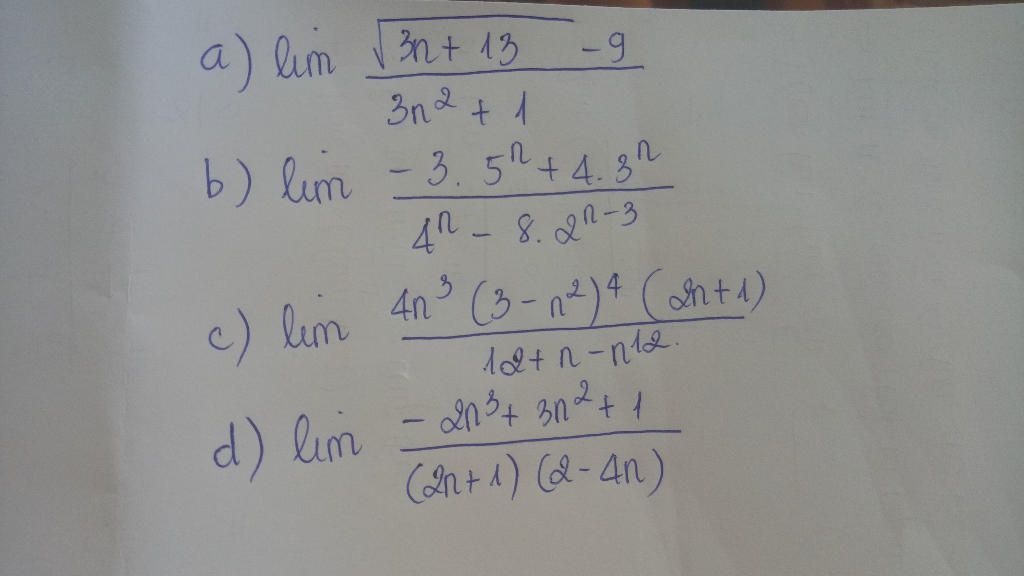 a) lim (√(3n + 13) - 9) / (3n² + 1)
b) lim (- 3. 5ⁿ + 4. 3ⁿ) / (4ⁿ - 8. 2ⁿ⁻³)
c) lim (4n³ (3 - n²)⁴ (2n+1)) / (12 + n - n¹².)
d) lim (- 2n³ + 3n² + 1) / ((2n+1) (2 - 4n))